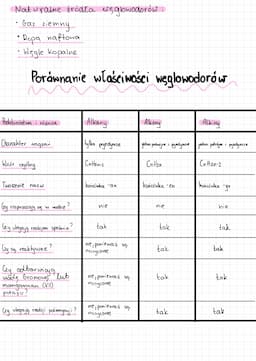 Naturalne źródła węglowodorów
• Gaz ziemny
• Ropa naftowa
• Węgle kopalne
Porównanie właściwości węglowodorów
Alkany Alkeny Alkiny
Charakter wiązań tylko pojedyncze
Wzór ogólny
Tworzenie nazw końcówka -an końcówka -en końcówka -yn
Czy rozpuszczają się w wodzie? nie nie nie
Czy ulegają reakcjom spalania? tak tak tak
Czy są reaktywne? nie, ponieważ są nasycone tak tak
Czy odbarwiają wodę bromową lub manganian (VII) potasu? nie, ponieważ są nasycone tak tak
Czy ulegają reakcji polimeryzacji? nie, ponieważ są nasycone tak tak